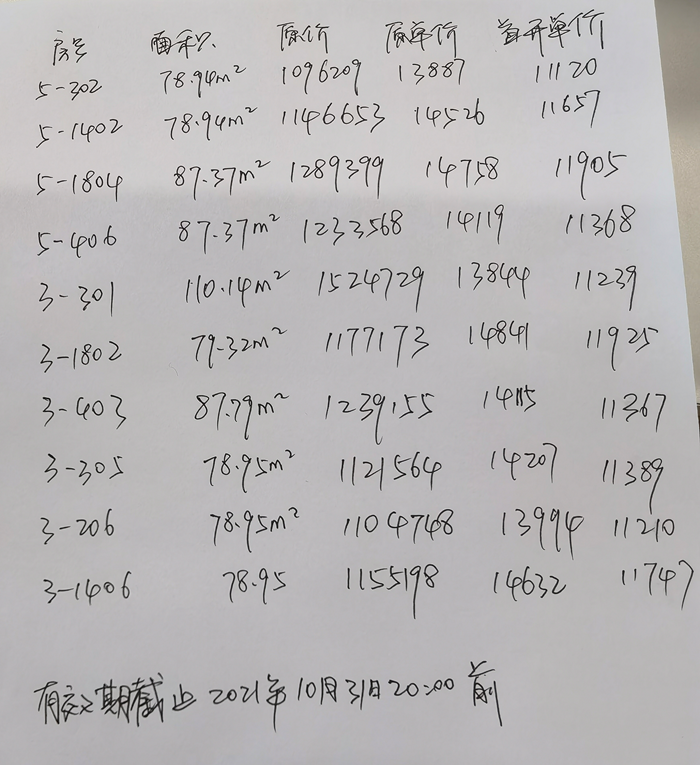 房号 面积 原价 原单价 首开单价
5-302 78.94m² 1096209 13887 11120
5-1402 78.94m² 1146653 14526 11657
5-1804 87.37m² 1289399 14758 11905
5-406 87.37m² 1233568 14119 11368
3-301 110.14m² 1524729 13844 11239
3-1802 79.32m² 1177173 14841 11925
3-403 87.79m² 1239155 14115 11367
3-305 78.95m² 1121564 14207 11389
3-206 78.95m² 1104748 13994 11210
3-1406 78.95 1155198 14632 11747
有效期截止2021年10月31日20:00前